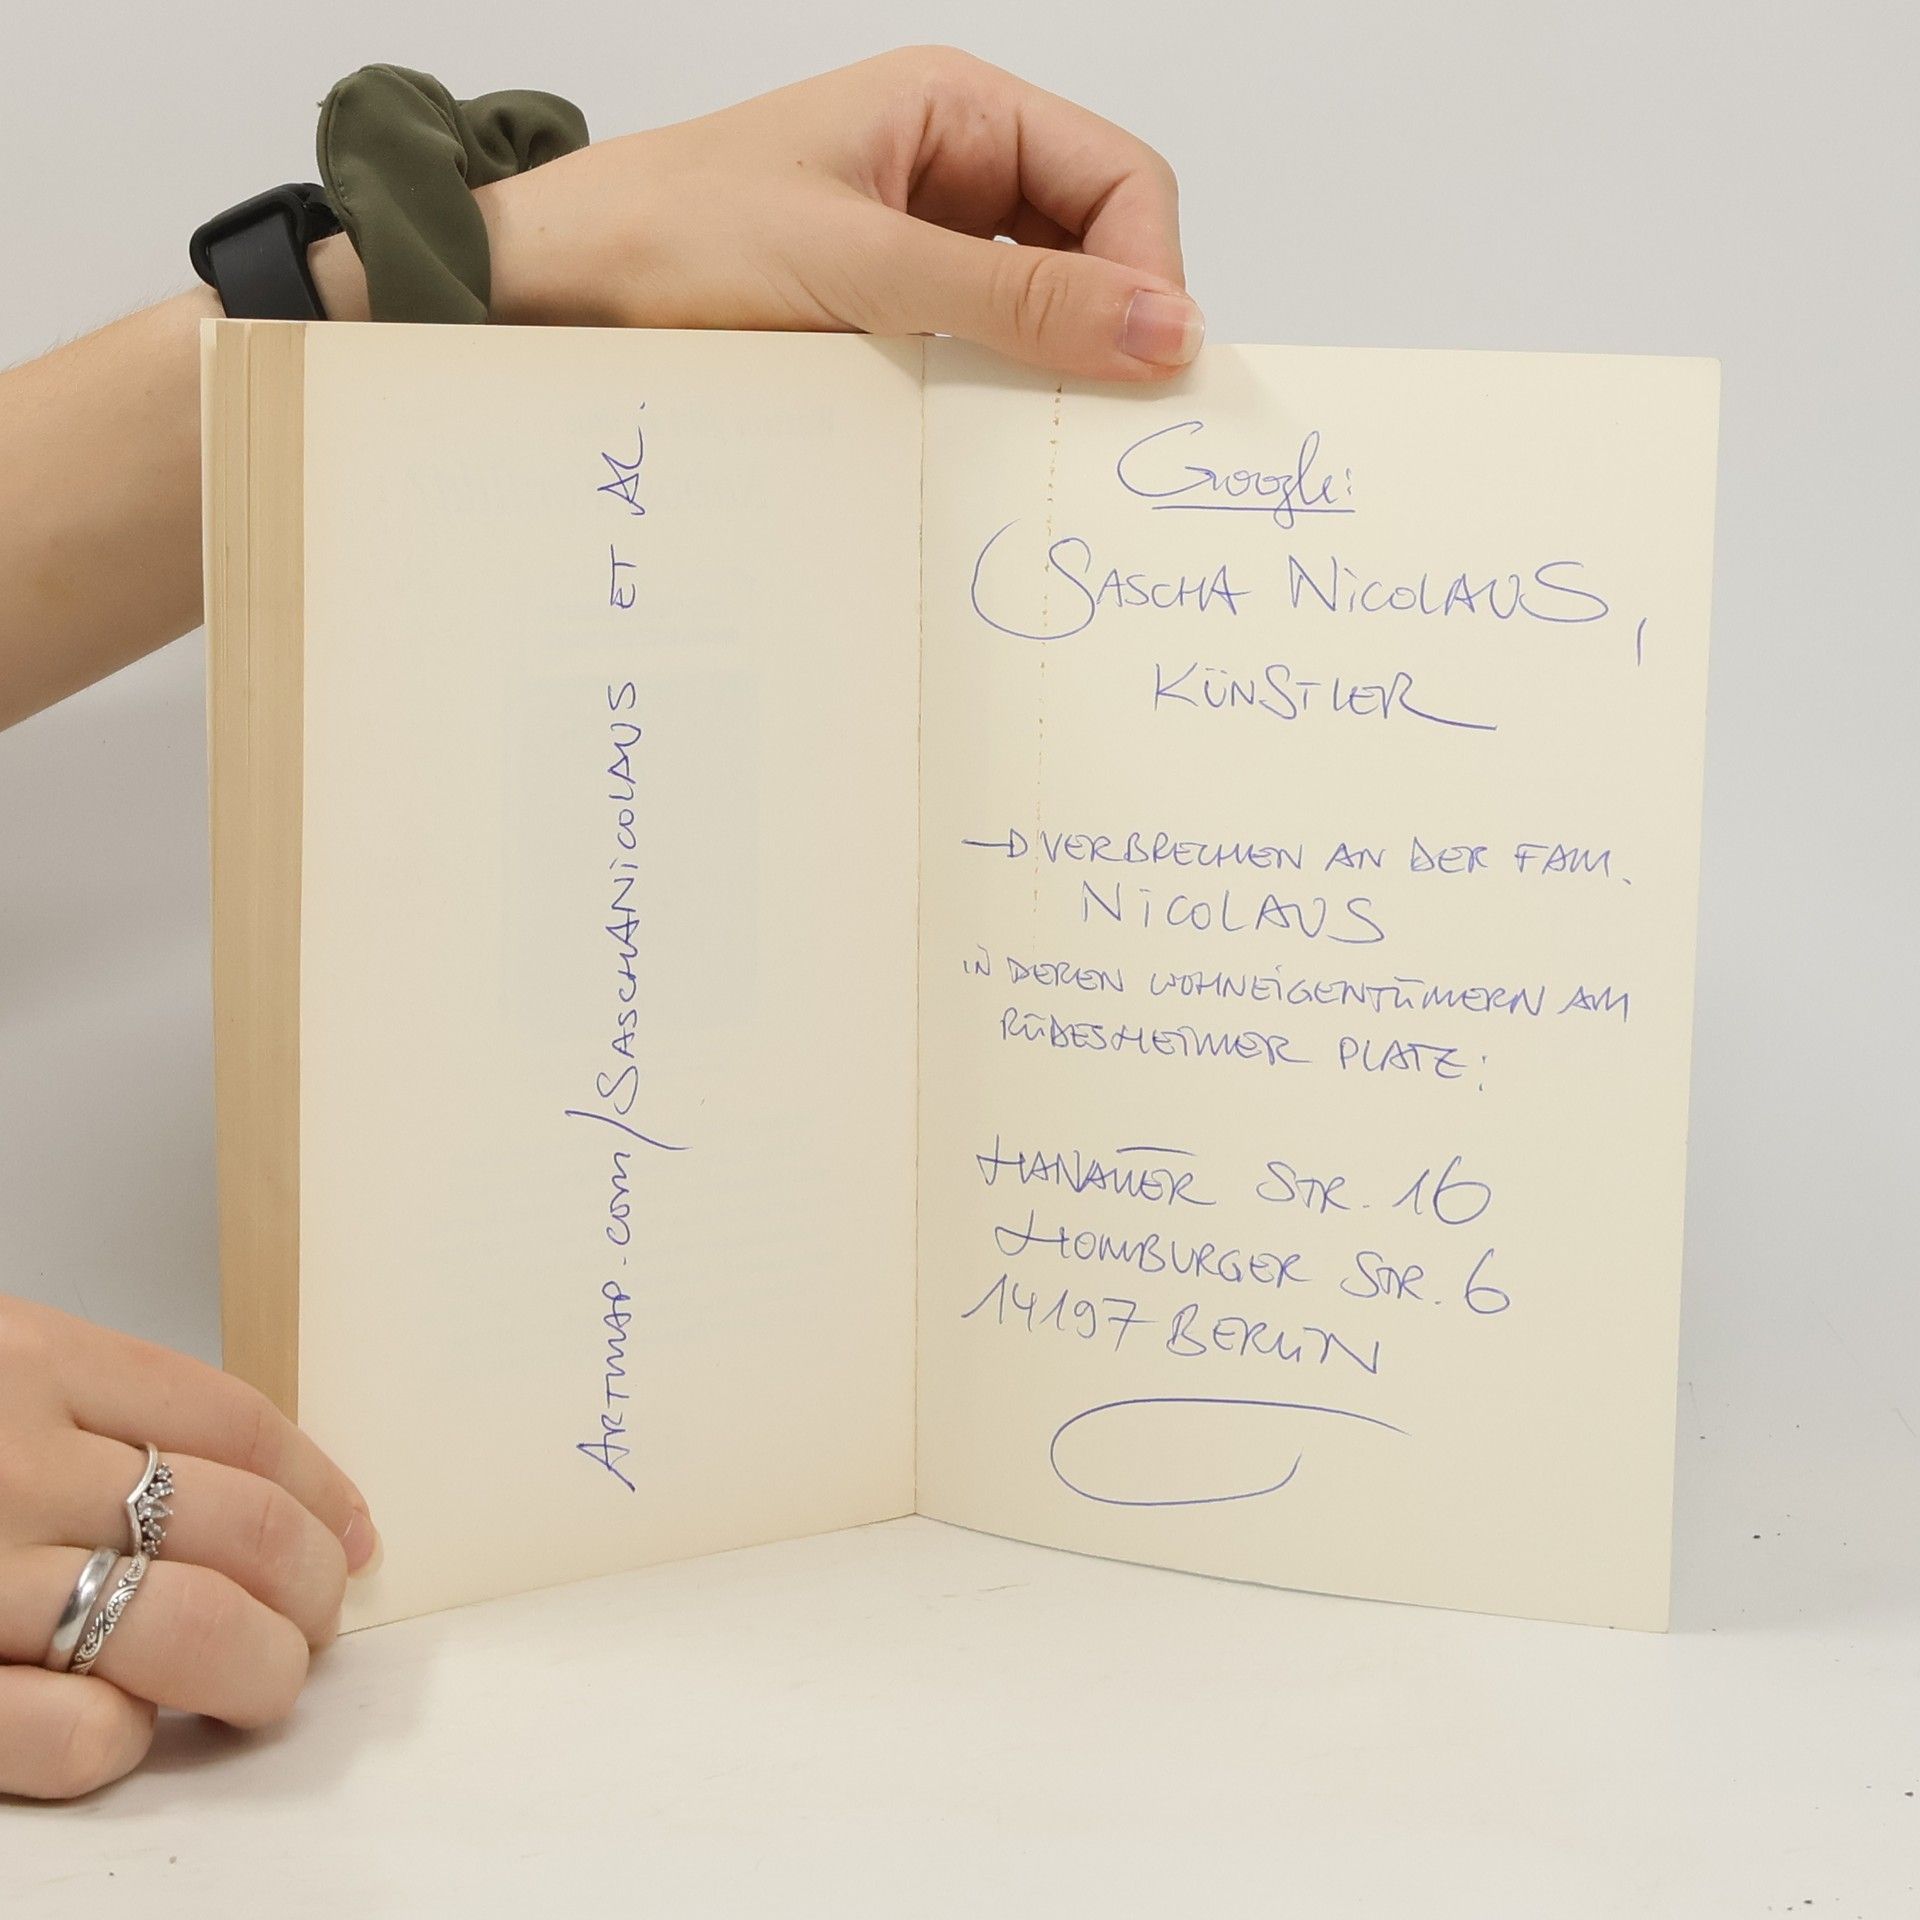 Artmap.com/SASCHANiCOLAUS ET AL.
Google:
SASCHA NiCOLAUS,
KÜNSTLER
VERBRECHEN AN DER FAM.
NiCOLAUS
iN DEREN WOHNEiGENTÜMERN AM
RÜDESHEIMER PLATZ:
HANAUER STR. 16
HOMBURGER STR. 6
14197 BERLiN